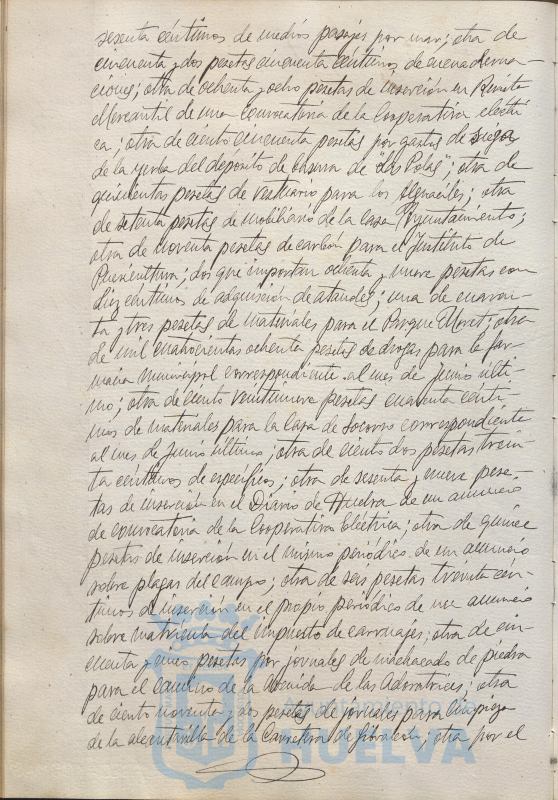 sesenta céntimos de medios pasajes por mar; otra de
cincuenta y dos pesetas cincuenta céntimos de encuaderna-
ciones; otra de ochenta y ocho pesetas de inserción en Revista
Mercantil de una convocatoria de la Cooperativa eléctri
ca; otra de ciento cincuenta pesetas por gastos de siega
de la yerba del depósito de basura de "Las Polas"; otra de
quinientas pesetas de vestuario para los Alguaciles; otra
de setenta pesetas de mobiliario de la casa Ayuntamiento;
otra de noventa pesetas de carbón para el Instituto de
Puericultura; dos que importan ochenta y nueve pesetas con
diez céntimos de adquisición de ataudes; una de cuaren-
ta y tres pesetas de materiales para el Parque Moret; otra
de mil cuatrocientas ochenta pesetas de drogas para la far-
macia municipal correspondiente al mes de Junio últi-
mo; otra de ciento veintinueve pesetas cuarenta cénti-
mos de materiales para la Casa de Socorro correspondiente
al mes de Junio último; otra de ciento dos pesetas trein-
ta céntimos de específicos; otra de sesenta y nueve pese-
tas de inserción en el Diario de Huelva de un anuncio
de convocatoria de la Cooperativa Eléctrica; otra de quince
pesetas de inserción en el mismo periódico de un anuncio
sobre plagas del campo; otra de seis pesetas treinta cén-
timos de inserción en el propio periódico de un anuncio
sobre matrícula del impuesto de carruajes; otra de cin-
cuenta y cinco pesetas por jornales de machacado de piedra
para el camino de la Avenida de las Adoratrices; otra
de ciento noventa y dos pesetas de jornales para limpieza
de la alcantarilla de la Carretera de Gibraleón; otra por el
Ayuntamiento de
HUELVA